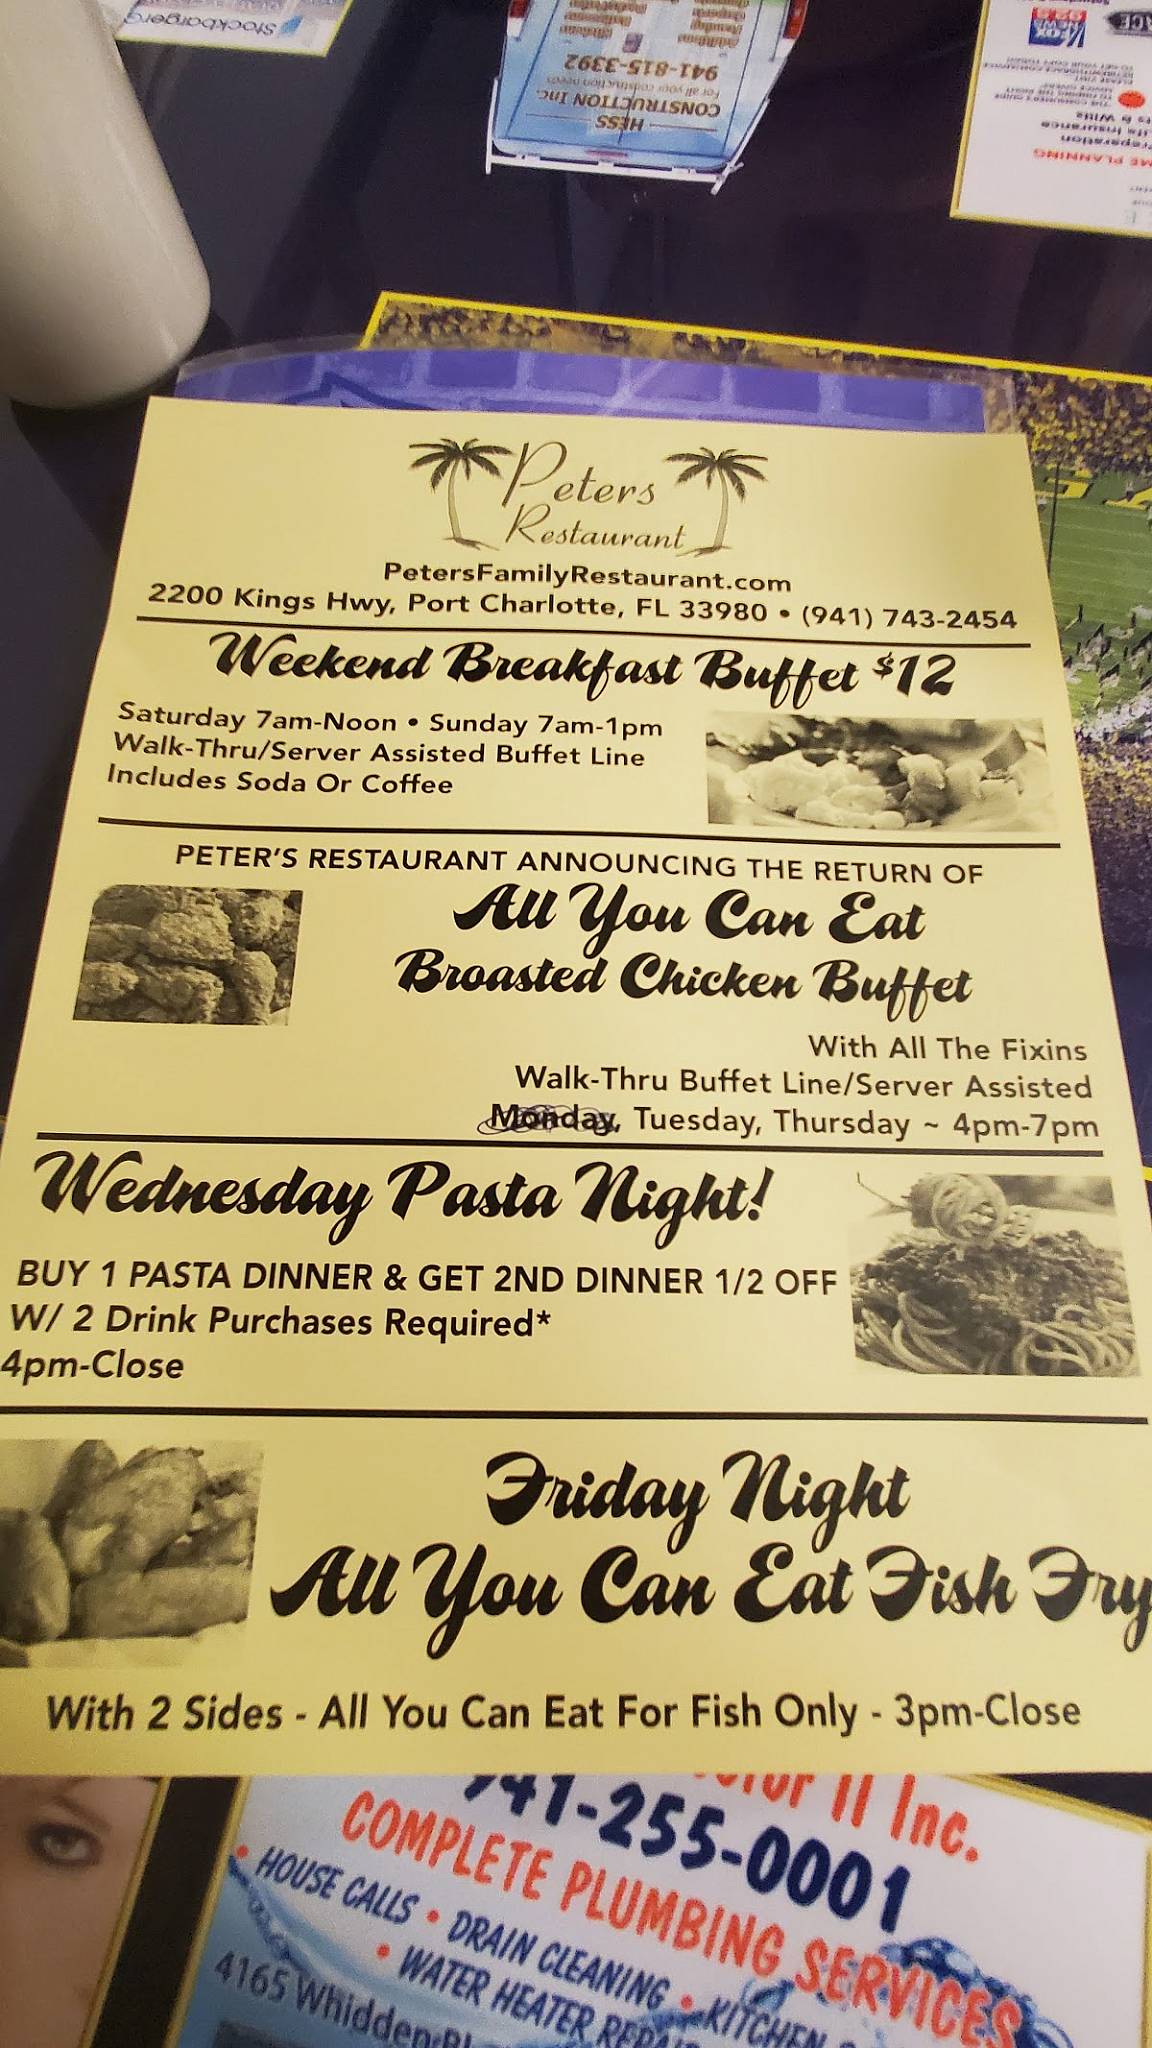 Stockbarger
HESS
CONSTRUCTION Inc.
For all your construction needs
941-815-3392
FOX
NEWS
ME PLANNING
reparation
ife Insurance
ts & Wills
Peters
Restaurant
PetersFamilyRestaurant.com
2200 Kings Hwy, Port Charlotte, FL 33980 • (941) 743-2454
Weekend Breakfast Buffet $12
Saturday 7am-Noon • Sunday 7am-1pm
Walk-Thru/Server Assisted Buffet Line
Includes Soda Or Coffee
PETER'S RESTAURANT ANNOUNCING THE RETURN OF
All You Can Eat
Broasted Chicken Buffet
With All The Fixins
Walk-Thru Buffet Line/Server Assisted
Monday, Tuesday, Thursday ~ 4pm-7pm
Wednesday Pasta Night!
BUY 1 PASTA DINNER & GET 2ND DINNER 1/2 OFF
W/ 2 Drink Purchases Required*
4pm-Close
Friday Night
All You Can Eat Fish Fry
With 2 Sides - All You Can Eat For Fish Only - 3pm-Close
II Inc.
941-255-0001
COMPLETE PLUMBING SERVICES
• HOUSE CALLS • DRAIN CLEANING • KITCHEN
• WATER HEATER REPAI
4165 Whidden Bl